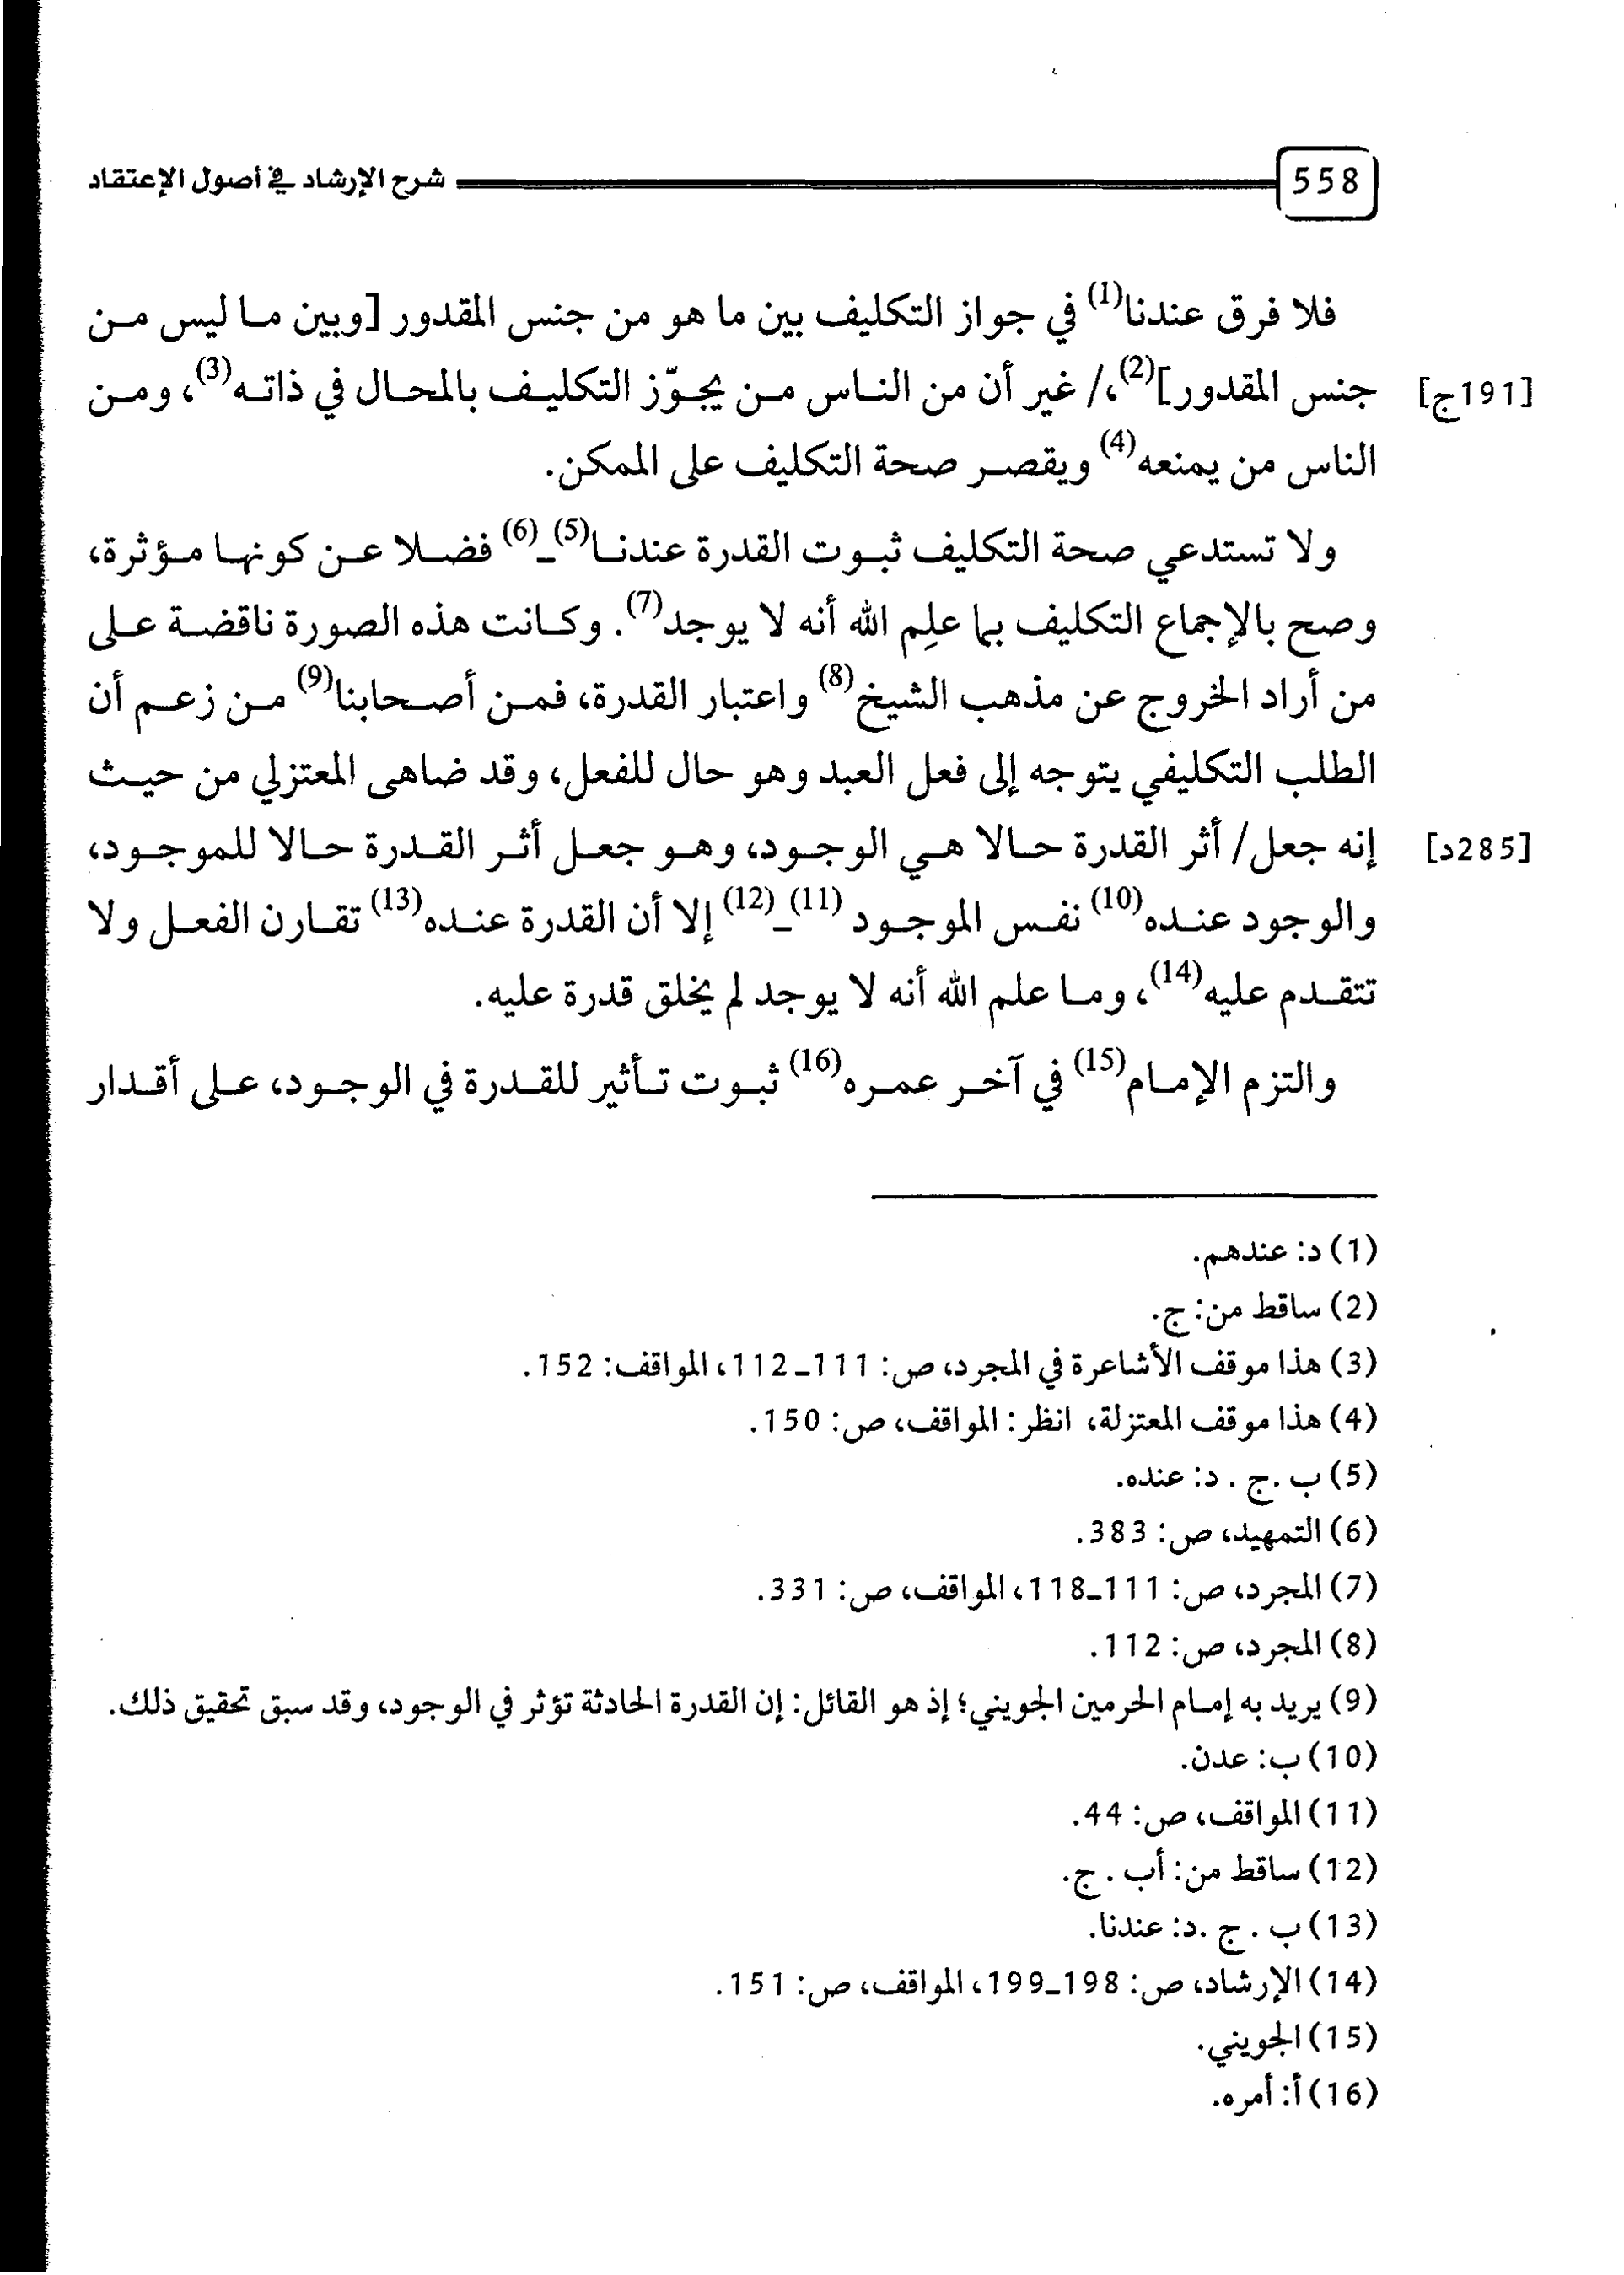 558 شرح الإرشاد في أصول الإعتقاد
فلا فرق عندنا(1) في جواز التكليف بين ما هو من جنس المقدور [وبين مـا ليس مـن
[191ج] جنس المقدور](2)،/ غير أن من النـاس مـن يجـوّز التكليـف بالمحـال في ذاتـه(3)، ومـن
الناس من يمنعه(4) ويقصـر صحة التكليف على الممكن.
ولا تستدعي صحة التكليف ثبـوت القدرة عندنـا(5)ـ(6) فضـلا عـن كونهـا مـؤثرة،
وصح بالإجماع التكليف بما علِم الله أنه لا يوجد(7). وكـانت هذه الصورة ناقضـة عـلى
من أراد الخروج عن مذهب الشيخ(8) واعتبار القدرة، فمـن أصـحابنا(9) مـن زعـم أن
الطلب التكليفي يتوجه إلى فعل العبد وهو حال للفعل، وقد ضاهى المعتزلي من حيـث
[285د] إنه جعل/ أثر القدرة حـالا هـي الوجـود، وهـو جعـل أثـر القـدرة حـالا للموجـود،
والوجود عنـده(10) نفـس الموجـود (11)ـ(12) إلا أن القدرة عنـده(13) تقـارن الفعـل ولا
تتقـدم عليه(14)، ومـا علم الله أنه لا يوجد لم يخلق قدرة عليه.
والتزم الإمـام(15) في آخـر عمـره(16) ثبـوت تـأثير للقـدرة في الوجـود، عـلى أقـدار
(1) د: عندهم.
(2) ساقط من: ج.
(3) هذا موقف الأشاعرة في المجرد، ص: 111ـ112، المواقف: 152.
(4) هذا موقف المعتزلة، انظر: المواقف، ص: 150.
(5) ب .ج . د: عنده.
(6) التمهيد، ص: 383.
(7) المجرد، ص: 111ـ118، المواقف، ص: 331.
(8) المجرد، ص: 112.
(9) يريد به إمـام الحرمين الجويني؛ إذ هو القائل: إن القدرة الحادثة تؤثر في الوجود، وقد سبق تحقيق ذلك.
(10) ب: عدن.
(11) المواقف، ص: 44.
(12) ساقط من: أب . ج.
(13) ب . ج .د: عندنا.
(14) الإرشاد، ص: 198ـ199، المواقف، ص: 151.
(15) الجويني.
(16) أ: أمره.